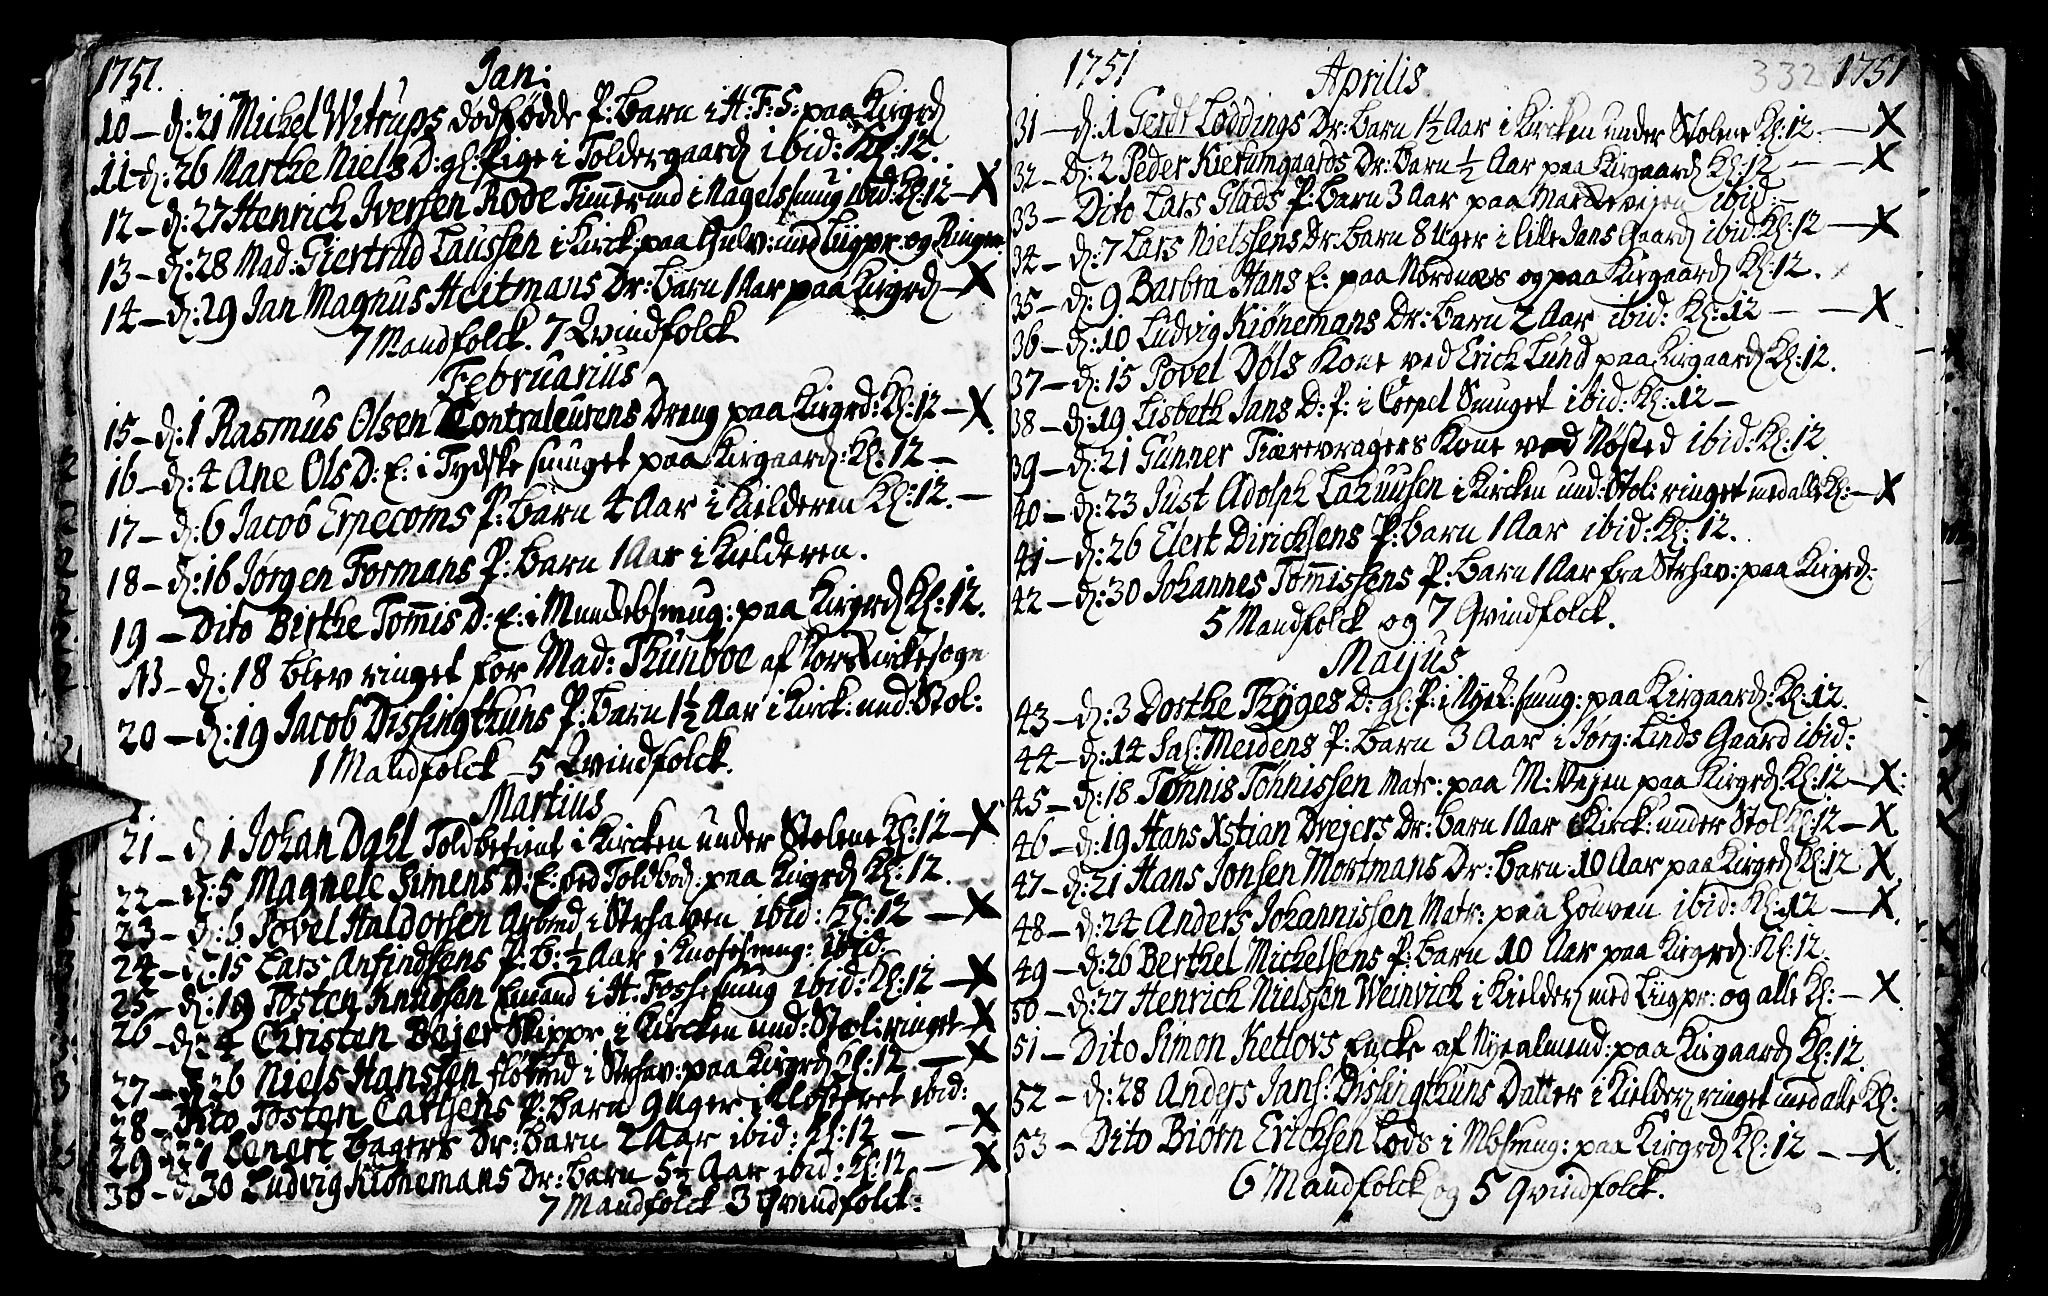 1751.
Jan:
10 – d: 21 Michel Witrups dødfødde P: Barn i H: F: S: paa Kirgrd
11 – d: 26 Marthe Niels D: gl: Pige i Toldergaard ibid: Kl: 12.
12 – d: 27 Henrich Iversen Rode Timermd i Nagelsmug ibid: Kl: 12 – X
13 – d: 28 Mad: Giertrud Laussen i Kirck: paa Gulv: med Liigpr: og Ringen
14 – d: 29 Jan Magnus Heitmans Dr: barn 1 Aar paa Kirgrd – X
7 Mandfolck. 7 Qvindfolck
Februarius
15 – d: 1 Rasmus Olsen Contraleurens Dreng paa Kirgrd: Kl: 12 – X
16 – d: 4 Ane Ols D: E: i Tydske smuget paa Kirgaard: Kl: 12 –
17 – d: 6 Jacob Erpecoms P: Barn 4 Aar i Kielderen Kl: 12. –
18 – d: 16 Jørgen Formans P: Barn 1 Aar i Kielderen.
19 – Dito Birthe Tomis D: E: i smug: paa Kirgrd Kl: 12.
NB – d: 18 blev ringet for Mad: Thunboe af Kors Kirckesogn
20 – d: 19 Jacob Dissingthuns P: Barn 1½ Aar i Kirck: und: Stol:
1 Mandfolck – 5 Qvindfolck.
Martius
21 – d 1 Johan Dahl Toldbetient i Kircken under Stolene Kl: 12 – X
22 – d: 5 Magnele Simens D: E: ved Toldbod: paa Kirgrd Kl: 12.
23 – d: 6 Povel Haldorsen Arbmd i Strhaven ibid: Kl: 12 – X
24 – d: 15 Lars Anfindsens P: B: ½ Aar i smug: ibid:
25 – d: 19 Tosten Knudsen Emand i H: Fosse smug ibid: Kl: 12 – X
26 – d: 4 Christen Bøjer Skippr i Kircken und: Stol: ringet – X
27 – d 26 Niels Hanssen fløtmd i Strhav: paa Kirgrd Kl: 12 – X
28 – Dito Tosten Carlsens P: Barn 9 uger i Klosteret ibid:
29 – d 27 Lenert Bagers Dr: Barn 2 Aar ibid: Kl: 12 – – X
30 – d 30 Ludvig Kiønemans Dr: barn 5½ Aar ibid: Kl: 12 – X
7 Mandfolck 3 Qvindfolck:
1751 Aprilis 332 1751
31 – d: 1 Gerdt Løddings Dr: Barn 1½ Aar i Kircken under Stolene Kl: 12 – X
32 – d: 2 Peder Kierumgaards Dr: Barn ½ Aar paa Kirgaard Kl: 12 – – X
33 – Dito Lars Glads P: Barn 3 Aar paa Marckevejen ibid: –
34 – d: 7 Lars Nielssens Dr: Barn 8 Uger i lille Jans Gaard ibid: Kl: 12 – X
35 – d: 9 Barbra Hans E: paa Nordnæs og paa Kirgaard Kl: 12.
36 – d: 10 Ludvig Kiønemans Dr: Barn 2 Aar ibid: Kl: 12 – – X
37 – d: 15 Povel Døls Kone ved Erich Lund paa Kirgaard Kl: 12.
38 – d: 19 Lisbeth Jans D: P: i Corpel Smuget ibid: Kl: 12 –
39 – d: 21 Gunner Tiærevragers Kone ved Nøsted ibid: Kl: 12.
40 – d: 23 Just Adolph i Kircken und: Stol: ringet med alle Kl: – X
41 – d: 26 Elert Dirichsens P: barn 1 Aar ibid: Kl: 12.
42 – d: 30 Johannes Tomissens P: Barn 1 Aar fra Strhav: paa Kirgrd:
5 Mandfolck og 7 Qvindfolck.
Maijus
43 – d: 3 Dorthe Thyges D: gl: P: i smug: paa Kirgaard: Kl: 12.
44 – d: 14 Sal: Meidens P: Barn 3 Aar i Jørg: Linds Gaard ibid:
45 – d: 18 Tønnis Tønnissen Matr: paa M: Vejen paa Kirgrd Kl: 12 – X:
46 – d: 19 Hans Xstian Drejers Dr: Barn 1 Aar i Kirck: under Stol Kl: 12 – X
47 – d: 21 Hans Jonsen Mortmans Dr: Barn 10 Aar paa Kirgrd Kl: 12 X
48 – d: 24 Anders Johannissen Matr: paa Houven ibid: Kl: 12 – X
49 – d: 26 Berthel Michelsens P: Barn 10 Aar paa Kirgrd: Kl: 12.
50 – d: 27 Henrich Nielsen Weinvich i Kielderd med Liigpr: og alle Kl: – X
51 – Dito Simon Ketlovs Encke af Nyealmend: paa Kirgaard Kl: 12.
52 – d: 28 Anders Jans: Dissingthuns Datter i Kielderd ringet med alle Kl:
53 – Dito Biørn Erichsen Lods i smug: paa Kirgrd Kl: 12 – – X
6 Mandfolck og 5 Qvindfolck.